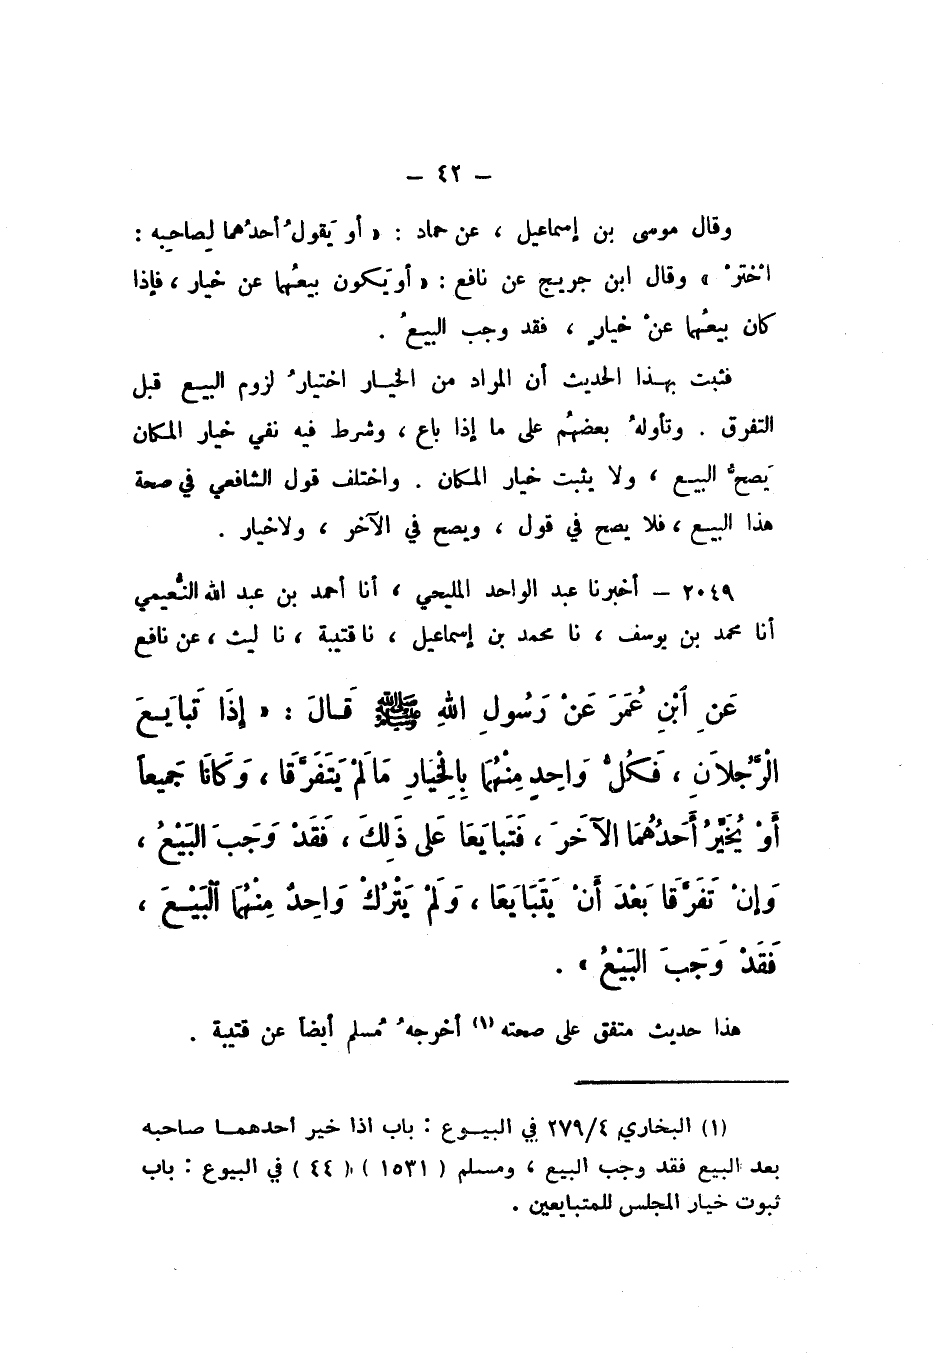 - ٤٢ -
وقال موسى بن إسماعيل ، عن حماد : « أو يَقولُ أحدُهما لِصاحِبِه :
اخْترْ » وقال ابن جريج عن نافع : « أو يَكون بيعُهما عن خيار ، فإذا
كان بيعُهما عنْ خيارٍ ، فقد وجب البيعُ .
فثبت بهذا الحديث أن المراد من الخيار اختيارُ لزوم البيع قبل
التفرق . وتأولهُ بعضهُم على ما إذا باع ، وشرط فيه نفي خيار المكان
يَصحُّ البيع ، ولا يثبت خيار المكان . واختلف قول الشافعي في صحة
هذا البيع ، فلا يصح في قول ، ويصح في الآخر ، ولا خيار .
٢٠٤٩ - أخبرنا عبد الواحد المليحي ، أنا أحمد بن عبد الله النُّعيمي
أنا محمد بن يوسف ، نا محمد بن إسماعيل ، نا قتيبة ، نا ليث ، عن نافع
عَنِ ٱبْنِ عُمَرَ عَنْ رَسُولِ اللهِ ﷺ قَالَ : « إِذَا تَبايَعَ
الرَّجُلاَنِ ، فَكُلُّ وَاحِدٍ مِنْهُمَا بِالْخِيَارِ مَا لَمْ يَتَفَرَّقَا ، وَكَانَا جَمِيعاً
أَوْ يُخَيِّرُ أَحَدُهُمَا الآخَرَ ، فَتَبايَعَا عَلى ذَلِكَ ، فَقَدْ وَجَبَ البَيْعُ ،
وَإِنْ تَفَرَّقَا بَعْدَ أَنْ يَتَبَايَعَا ، وَلَمْ يَتْرُكْ وَاحِدٌ مِنْهُمَا ٱلْبَيْعَ ،
فَقَدْ وَجَبَ البَيْعُ » .
هذا حديث متفق على صحته (١) أخرجهُ مُسلم أيضاً عن قتيبة .
(١) البخاري ٢٧٩/٤ في البيوع : باب اذا خير أحدهما صاحبه
بعد البيع فقد وجب البيع ، ومسلم ( ١٥٣١ ) ( ٤٤ ) في البيوع : باب
ثبوت خيار المجلس للمتبايعين .